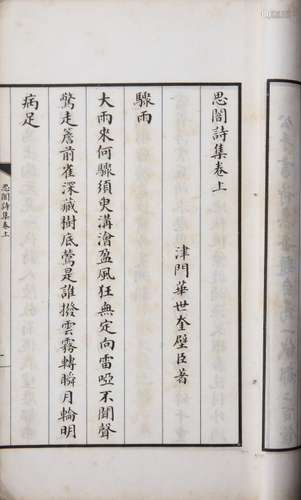 思闇詩集卷上
津門華世奎璧臣著
驟雨
大雨來何驟須臾溝澮盈風狂無定向雷啞不聞聲
驚走簷前雀深藏樹底鶯是誰撥雲霧轉瞬月輪明
病足
思闇詩集卷上
一